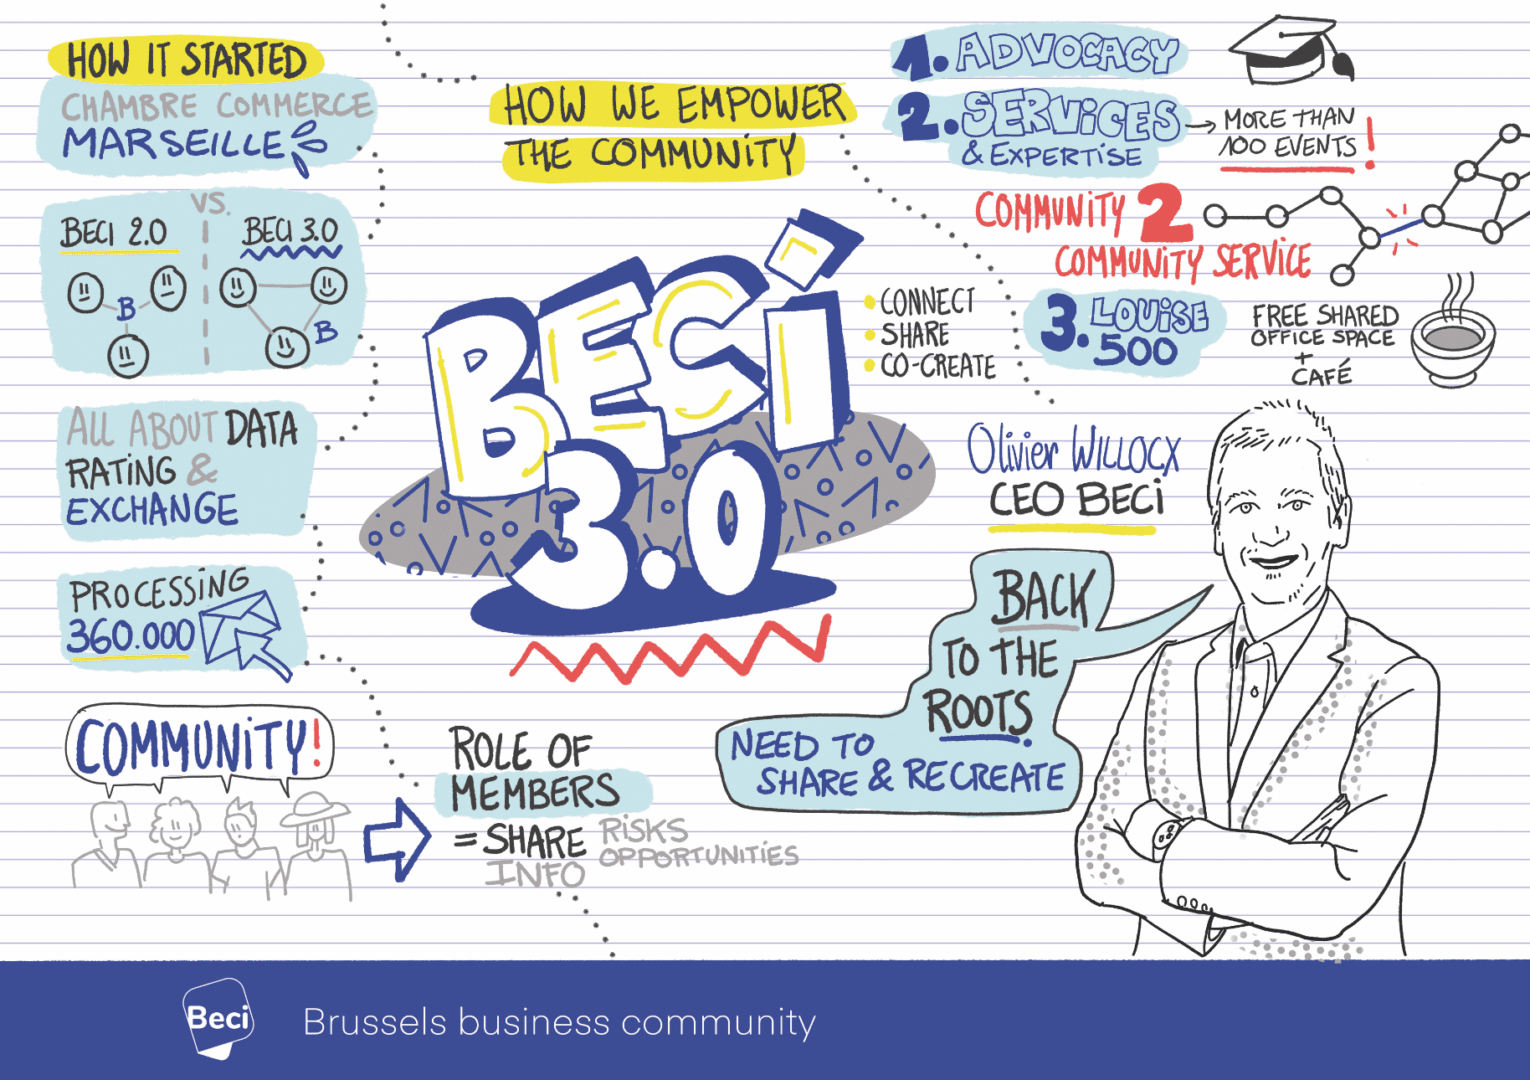 HOW IT STARTED
CHAMBRE COMMERCE
MARSEILLE
VS.
BECI 2.0
BECI 3.0
B
B
ALL ABOUT DATA
RATING &
EXCHANGE
PROCESSING
360.000
COMMUNITY!
ROLE OF
MEMBERS
= SHARE RISKS
INFO OPPORTUNITIES
HOW WE EMPOWER
THE COMMUNITY
BECI
3.0
• CONNECT
• SHARE
• CO-CREATE
1. ADVOCACY
2. SERVICES
& EXPERTISE
→ MORE THAN
100 EVENTS!
COMMUNITY 2
COMMUNITY SERVICE
3. LOUISE
500
FREE SHARED
OFFICE SPACE
+
CAFÉ
Olivier WILLOCX
CEO BECI
BACK
TO THE
ROOTS.
NEED TO
SHARE & RECREATE
Beci
Brussels business community